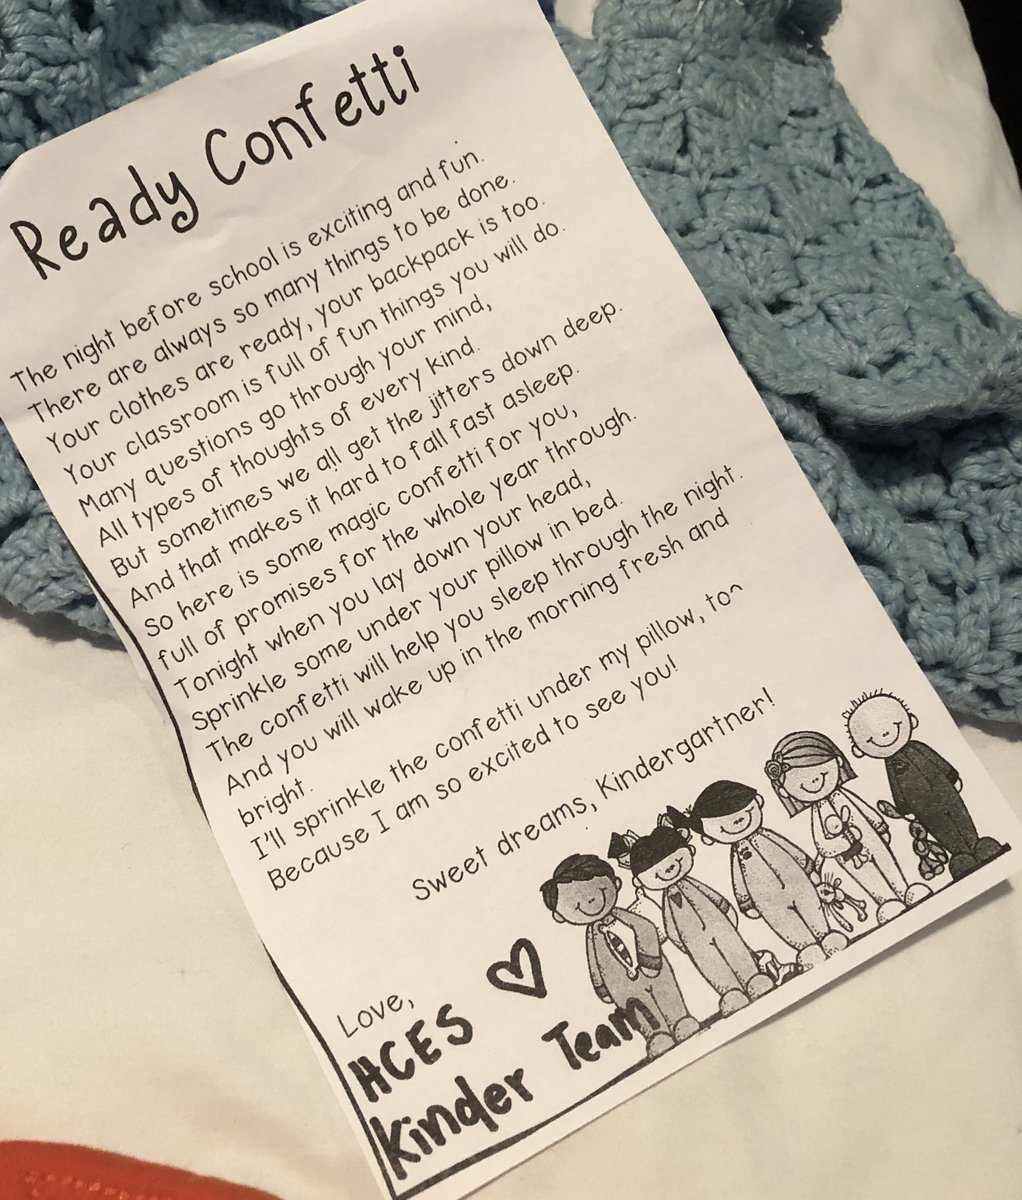 Ready Confetti
The night before school is exciting and fun.
There are always so many things to be done.
Your clothes are ready, your backpack is too.
Your classroom is full of fun things you will do.
Many questions go through your mind,
All types of thoughts of every kind.
But sometimes we all get the jitters down deep.
And that makes it hard to fall fast asleep.
So here is some magic confetti for you,
full of promises for the whole year through.
Tonight when you lay down your head,
Sprinkle some under your pillow in bed.
The confetti will help you sleep through the night.
And you will wake up in the morning fresh and
bright.
I'll sprinkle the confetti under my pillow, to^
Because I am so excited to see you!
Sweet dreams, Kindergartner!
Love,
HCES
Kinder Team